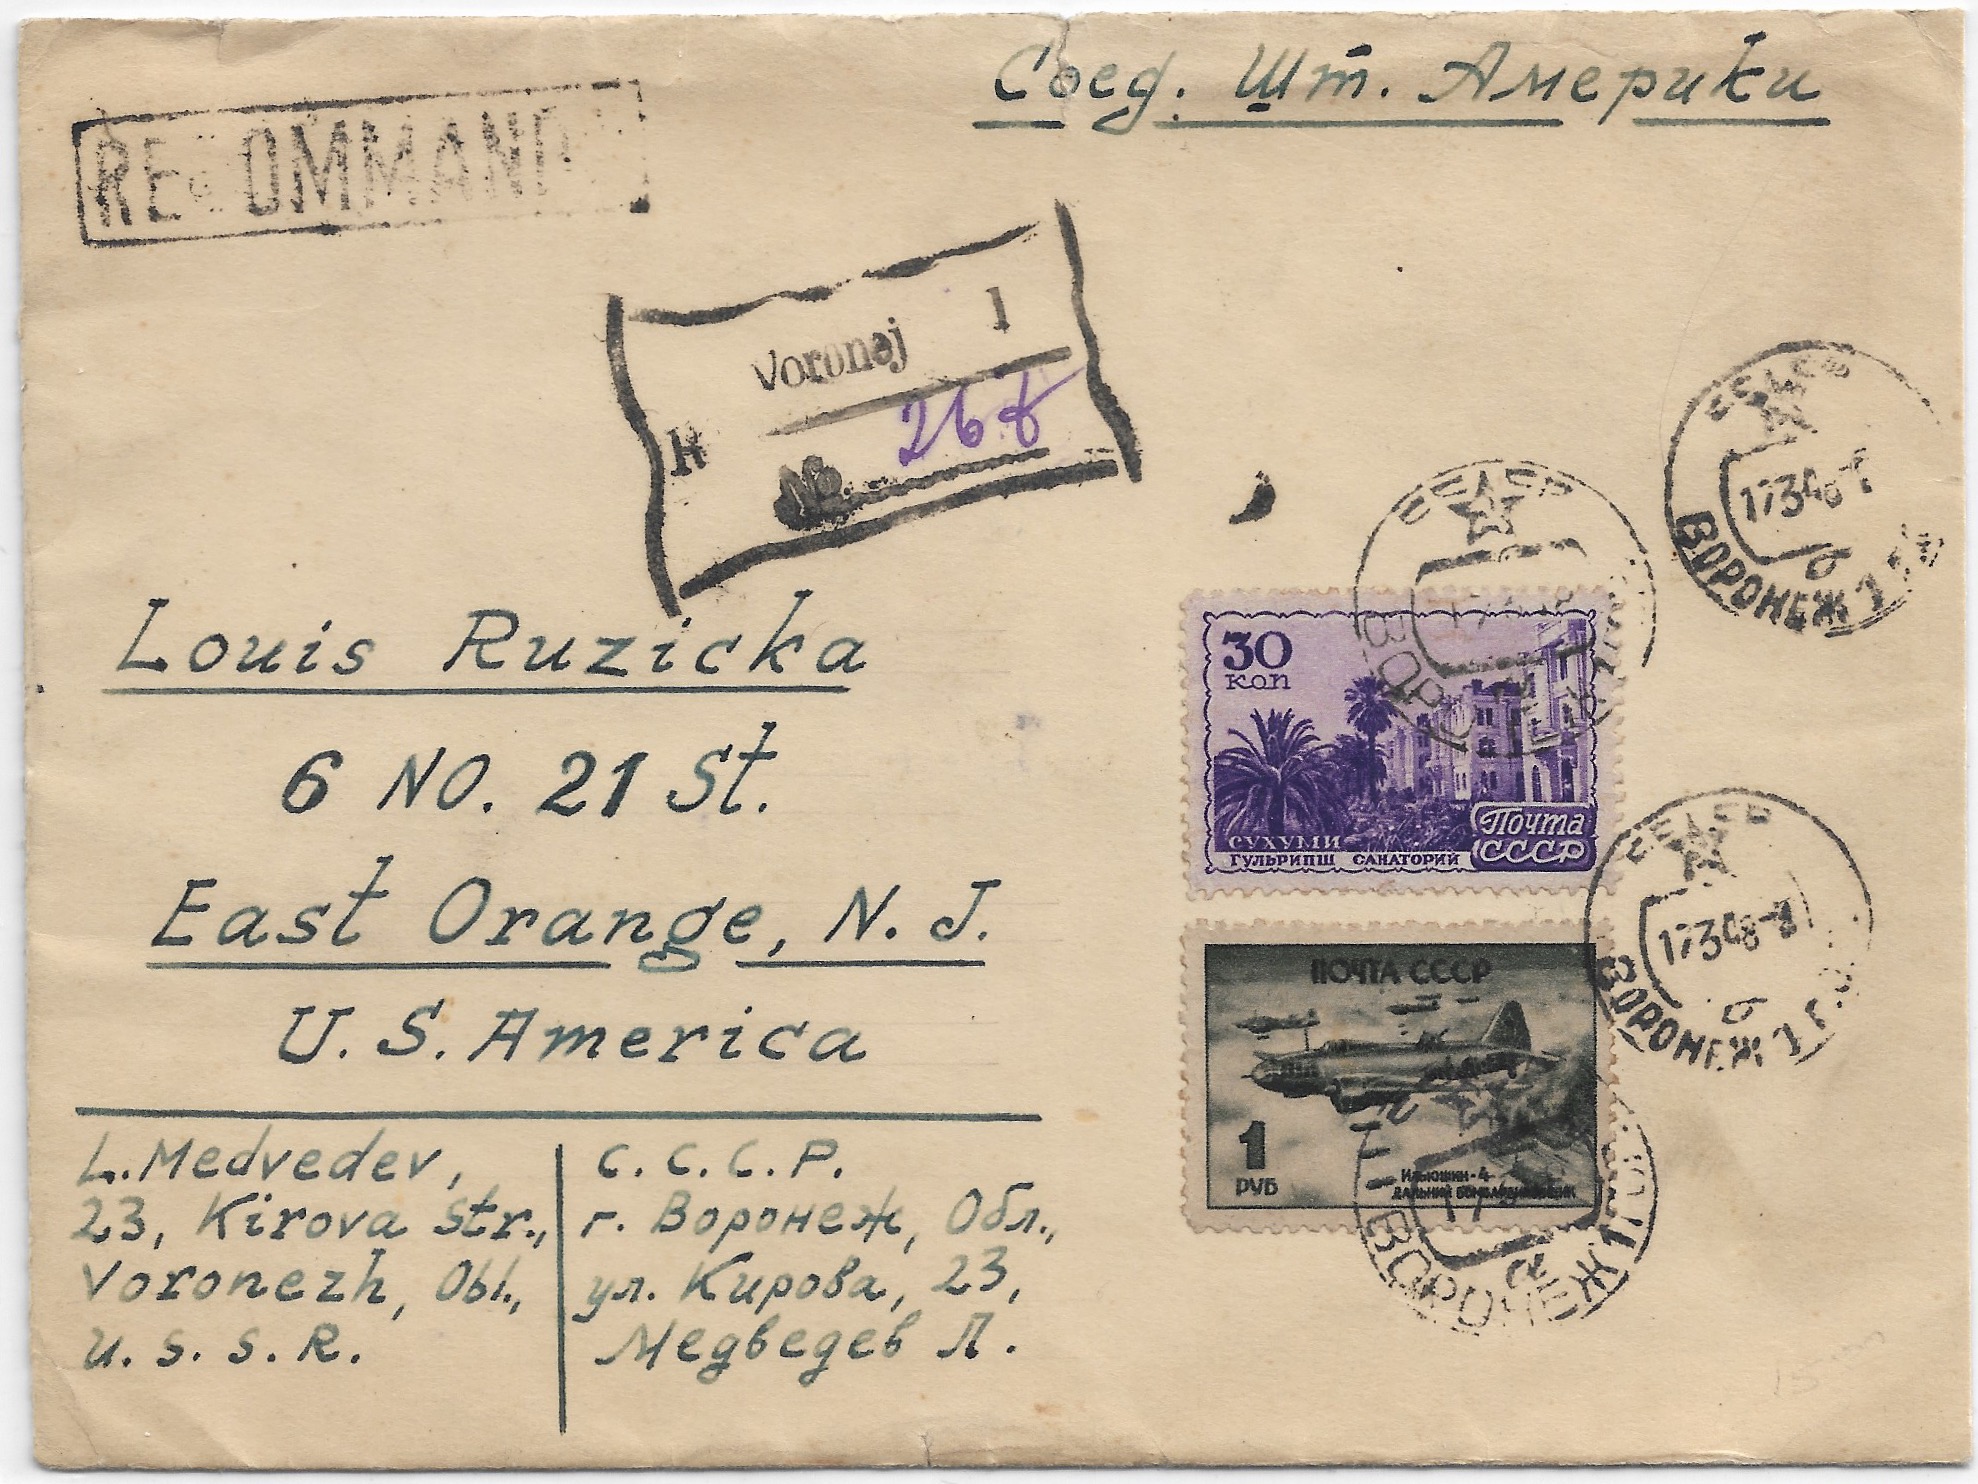 Соед. Шт. Америки
RECOMMAND
Voronej 1
R
№ 267
Louis Ruzicka
6 NO. 21 St.
East Orange, N. J.
U. S. America
L. Medvedev,
23, Kirova str.,
Voronezh, Obl.,
U. S. S. R.
С. С. С. Р.
г. Воронеж, Обл.,
ул. Кирова, 23,
Медведев Л.
30
коп
СУХУМИ
ГУЛЬРИПШ САНАТОРИЙ
Почта
СССР
ПОЧТА СССР
1
РУБ
Ильюшин-4
ДАЛЬНИЙ БОМБАРДИРОВЩИК
17348
б
ВОРОНЕЖ 1
17348
б
ВОРОНЕЖ 1
ВОРОНЕЖ
а
ВОРОНЕЖ 1